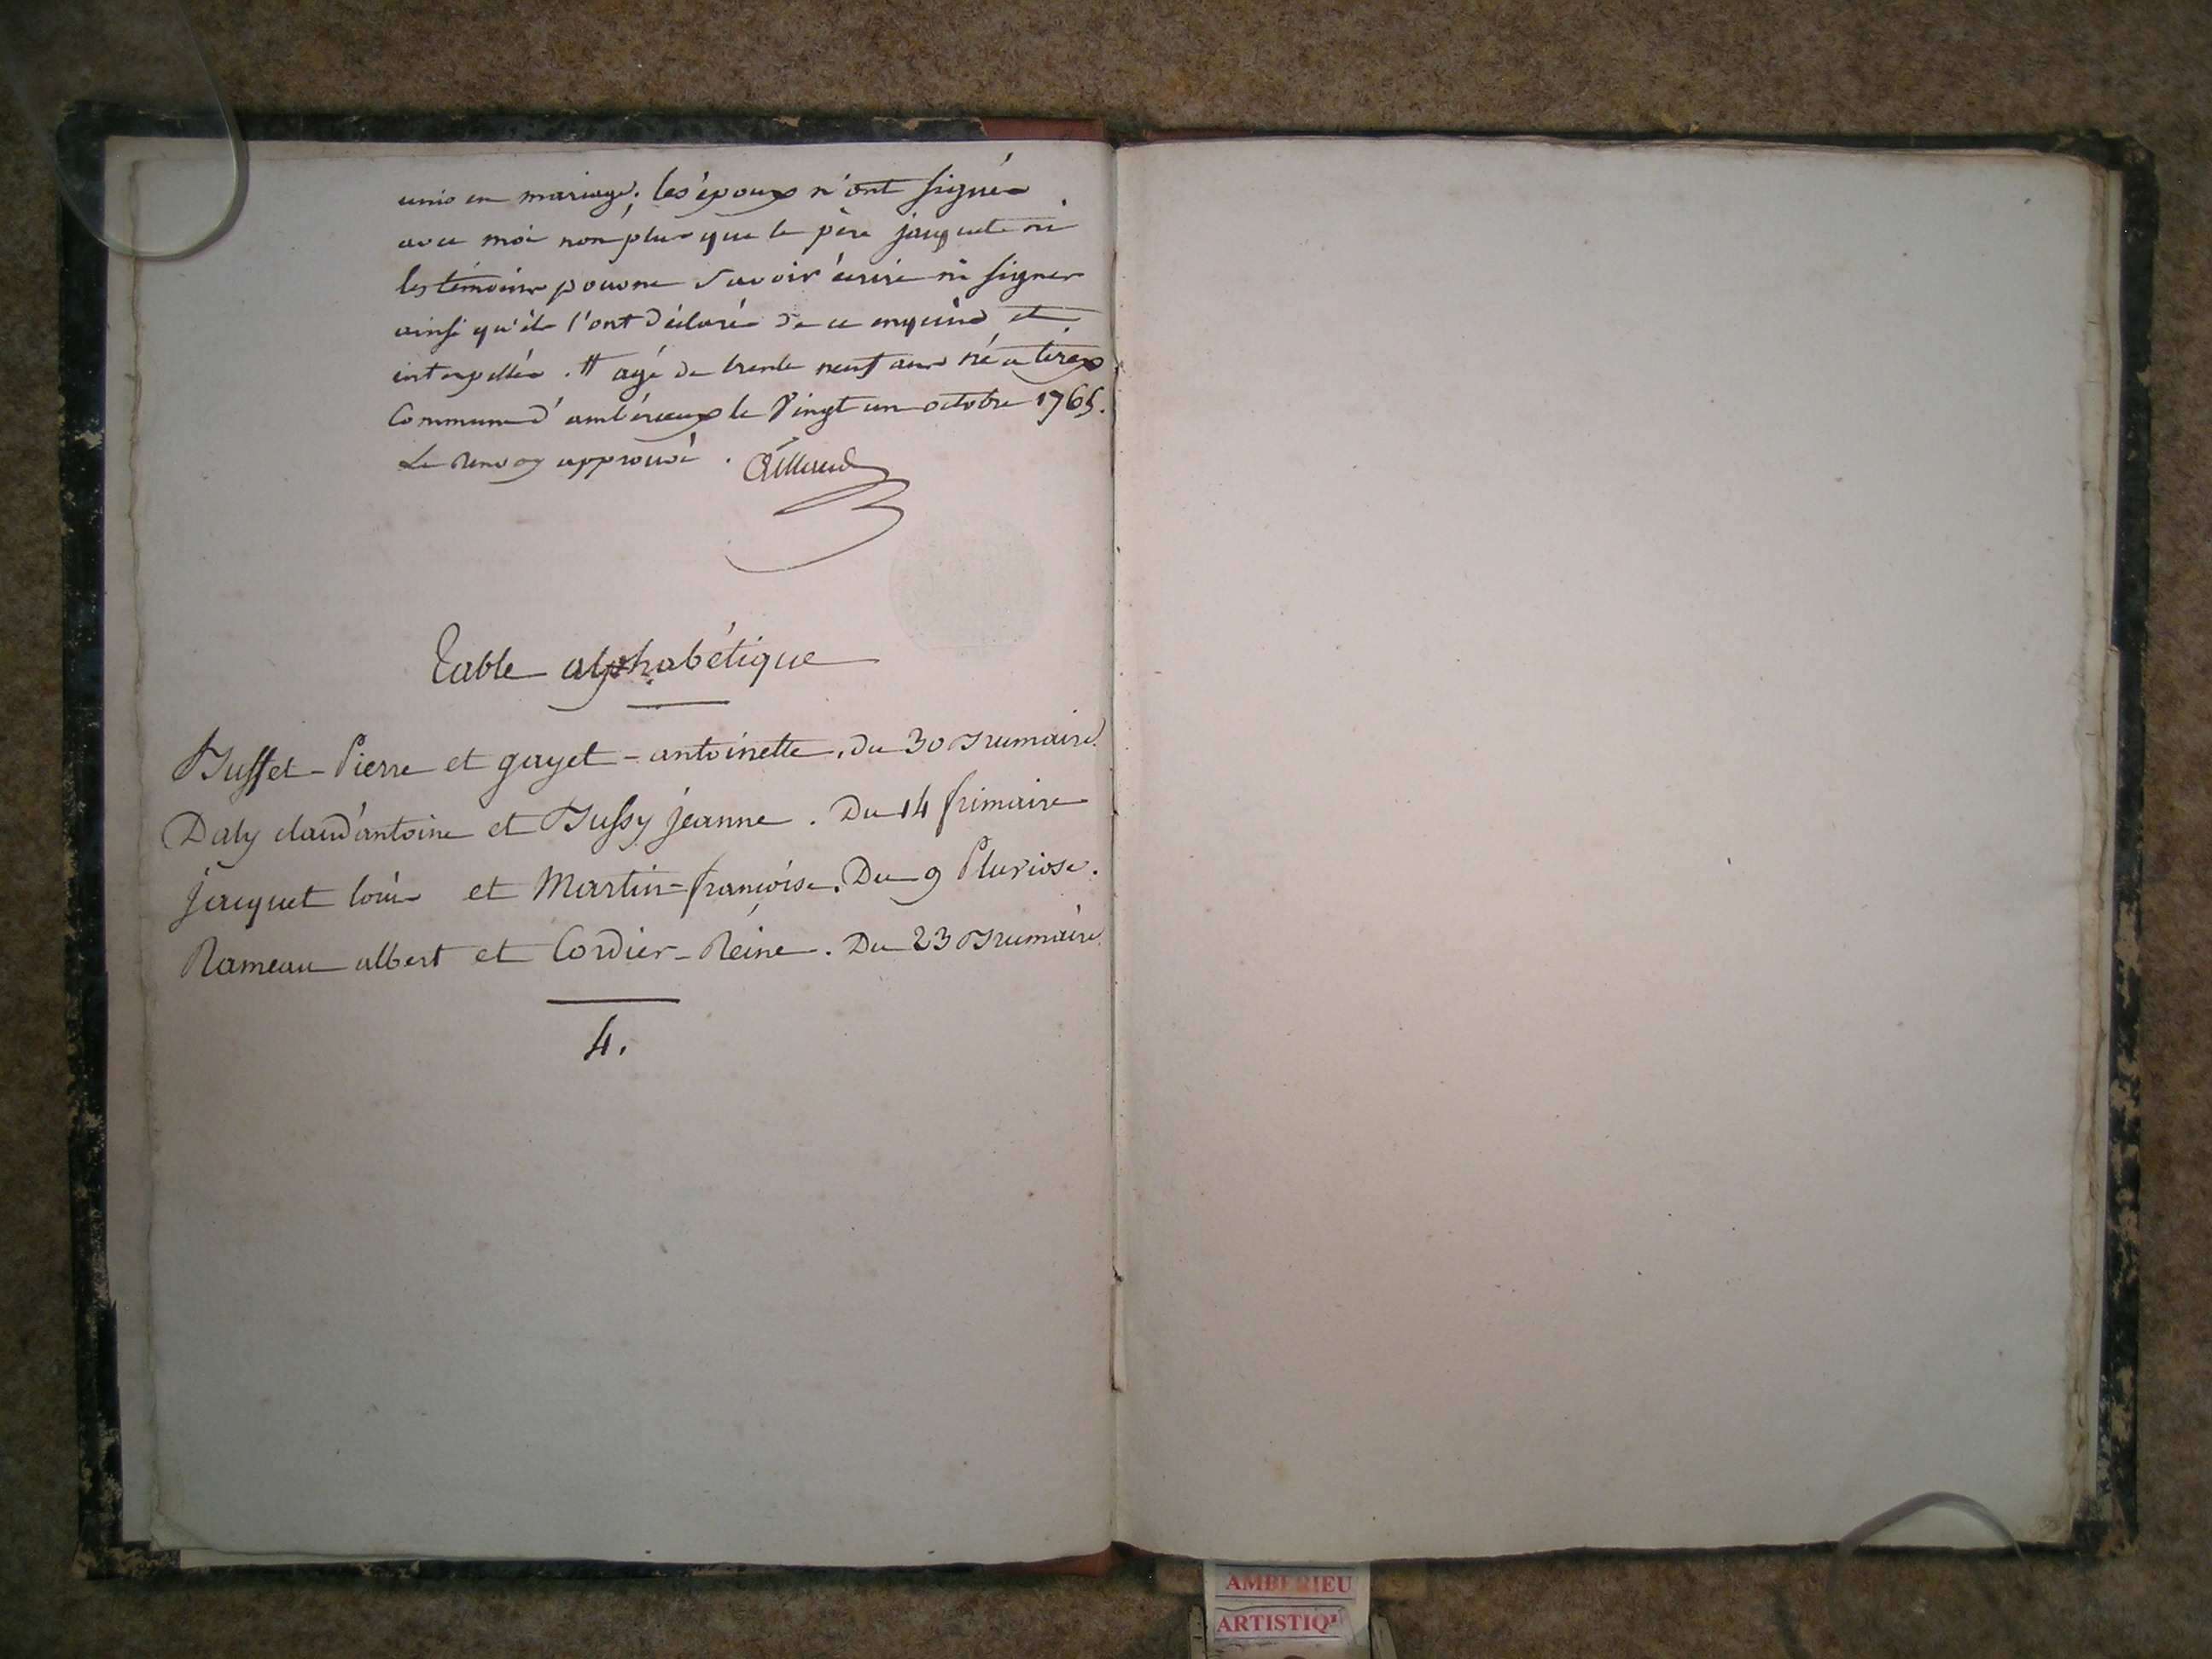 unis en mariage; les époux n'ont signés
avec moi non plus que le père jacquet ni
les témoins pour ne savoir écrire ni signer
ainsi qu'ils l'ont déclaré de ce enquis et
interpellés. # agé de trente neuf ans né a tirex
Commune d'ambérieux le Vingt un octobre 1765.
Le renvoy approuvé.
Table alphabétique
Buffet - Pierre et gayet - antoinette. du 30 Brumaire.
Daly claud'antoine et Bussy jeanne. Du 14 frimaire
jacquet louis et Martin - françoise. Du 9 Pluviose.
Rameau albert et Cordier - Reine. Du 23 Brumaire.
4.
AMBERIEU
ARTISTIQ